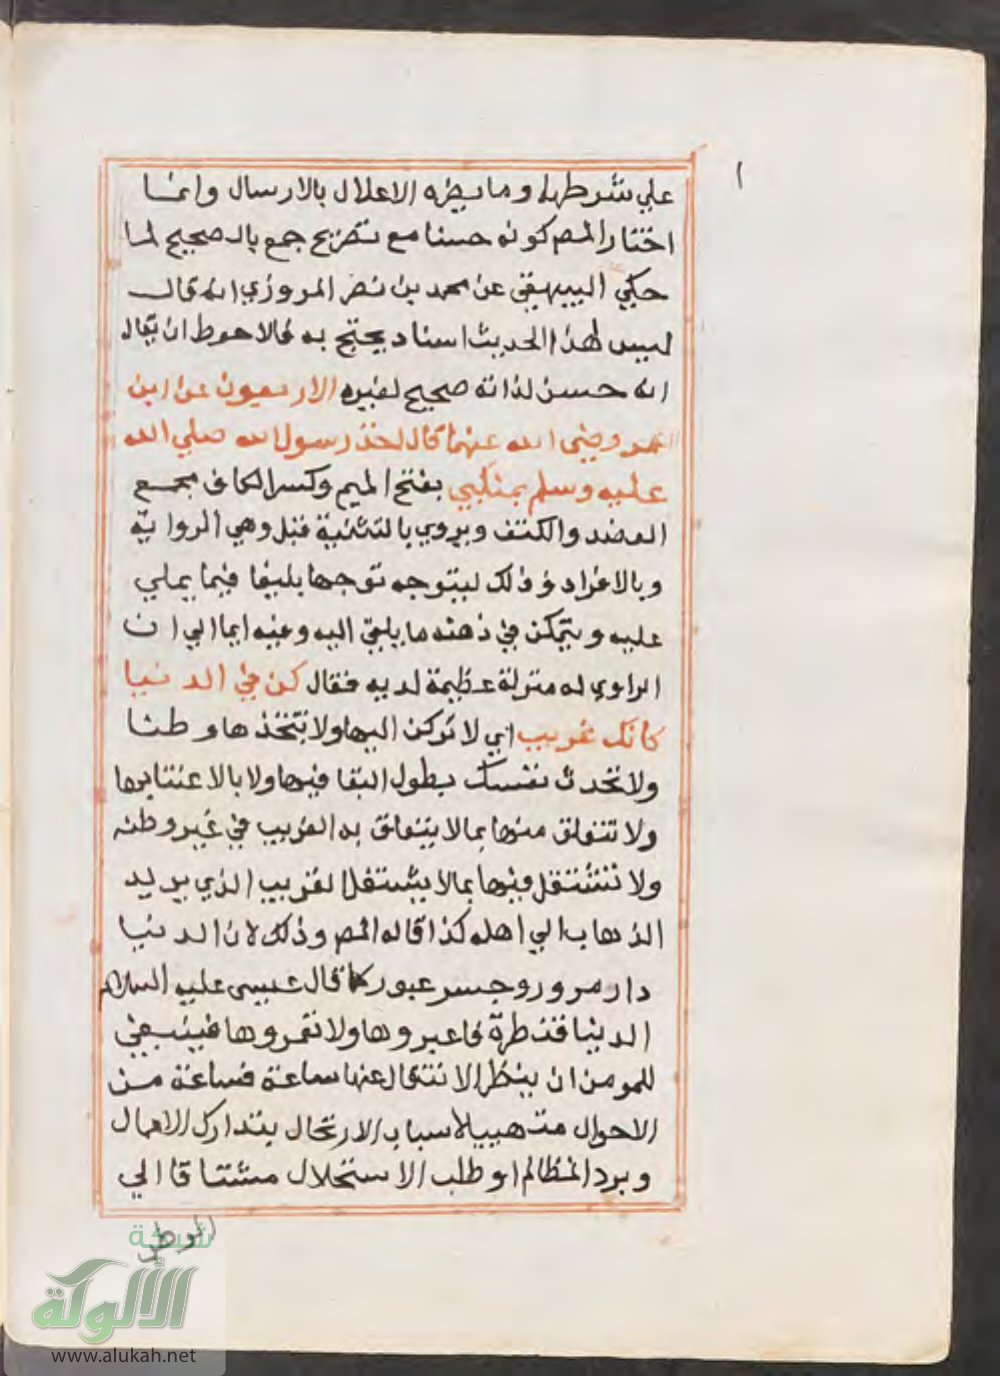 ا
علي شرطها وما يضره الاعلال بالارسال وانما
اختار المص كونه حسنا مع تصريح جمع بالصحيح لما
حكي البيهقي عن محمد بن نصر المروزي انه قال
ليس لهذا الحديث اسناد يحتج به فالاحوط ان يقال
انه حسن لذاته صحيح لغيره الاربعون عن ابن
عمر رضي الله عنهما قال اخذ رسول الله صلي الله
عليه وسلم بمنكبي بفتح الميم وكسر الكاف مجمع
العضد والكتف ويروي بالتثنية قبل وهي الرواية
وبالافراد وذلك ليتوجه توجها بليغا فيما يملي
عليه ويتمكن في ذهنه ما يلقي اليه وفيه ايما الي ان
الراوي له منزلة عظيمة لديه فقال كن في الدنيا
كانك غريب اي لا تركن اليها ولا تتخذها وطنا
ولا تحدث نفسك بطول البقا فيها ولا بالاعتنا بها
ولا تتعلق منها بما لا يتعلق به الغريب في غير وطنه
ولا تشتغل فيها بما لا يشتغل الغريب الذي يريد
الذهاب الي اهله كذا قاله المص وذلك لان الدنيا
دار مرور وجسر عبور كما قال عيسي عليه السلام
الدنيا قنطرة فاعبروها ولا تعمروها فينبغي
للمومن ان ينظر الانتقال عنها ساعة فساعة من
الاحوال متهييا لاسباب الارتحال بتدارك الاعمال
وبرد المظالم او طلب الاستحلال مشتاقا الي
الوطن
شبكة
الألوكة
www.alukah.net